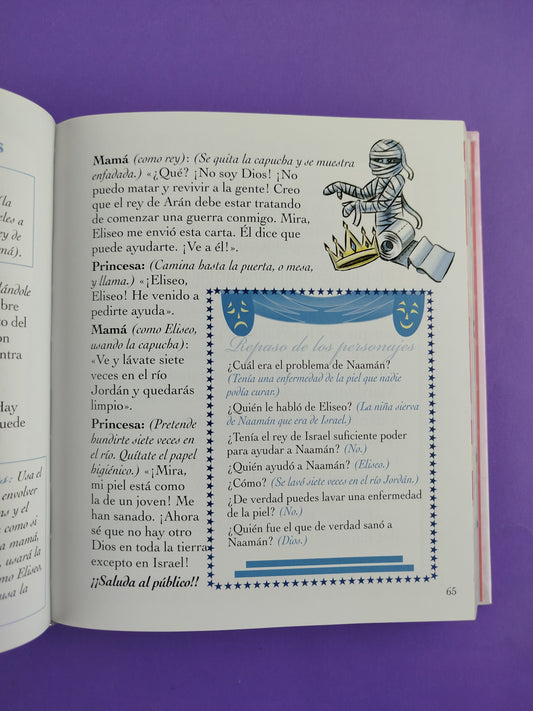 s
(la
eles a
ey de
má).
ándole
bre
to del
on
ntra
Hay
uede
s: Usa el
envolver
s y el
como si
a mamá,
usará la
mo Eliseo,
usa la
Mamá (como rey): (Se quita la capucha y se muestra
enfadada.) «¿Qué? ¡No soy Dios! ¡No
puedo matar y revivir a la gente! Creo
que el rey de Arán debe estar tratando
de comenzar una guerra conmigo. Mira,
Eliseo me envió esta carta. Él dice que
puede ayudarte. ¡Ve a él!».
Princesa: (Camina hasta la puerta, o mesa,
y llama.) «¡Eliseo,
Eliseo! He venido a
pedirte ayuda».
Mamá (como Eliseo,
usando la capucha):
«Ve y lávate siete
veces en el río
Jordán y quedarás
limpio».
Princesa: (Pretende
hundirte siete veces en
el río. Quítate el papel
higiénico.) «¡Mira,
mi piel está como
la de un joven! Me
han sanado. ¡Ahora
sé que no hay otro
Dios en toda la tierra
excepto en Israel!
¡¡Saluda al público!!
Repaso de los personajes
¿Cuál era el problema de Naamán?
(Tenía una enfermedad de la piel que nadie
podía curar.)
¿Quién le habló de Eliseo? (La niña sierva
de Naamán que era de Israel.)
¿Tenía el rey de Israel suficiente poder
para ayudar a Naamán? (No.)
¿Quién ayudó a Naamán? (Eliseo.)
¿Cómo? (Se lavó siete veces en el río Jordán.)
¿De verdad puedes lavar una enfermedad
de la piel? (No.)
¿Quién fue el que de verdad sanó a
Naamán? (Dios.)
65